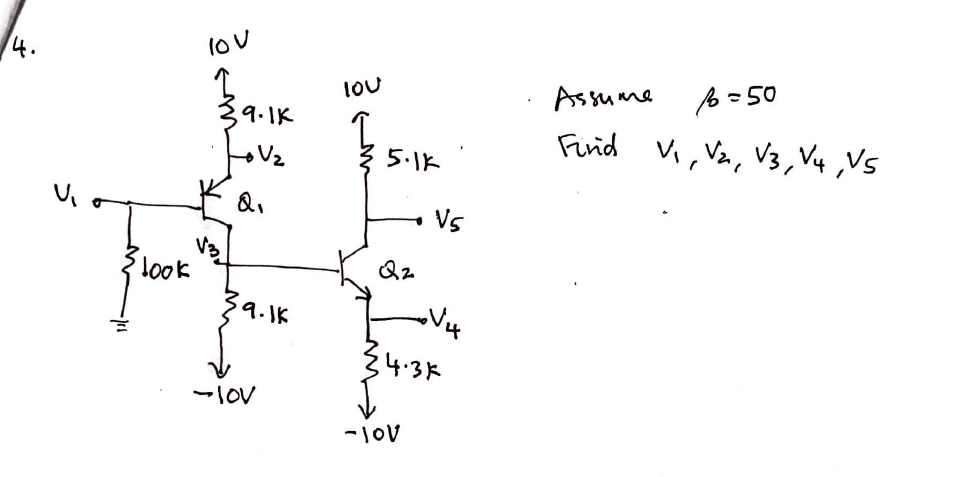 4.
10V
9.1K
V2
V1
Q1
V3
100K
9.1K
-10V
10V
5.1K
V5
Q2
V4
4.3K
-10V
Assume β=50
Find V1, V2, V3, V4, V5